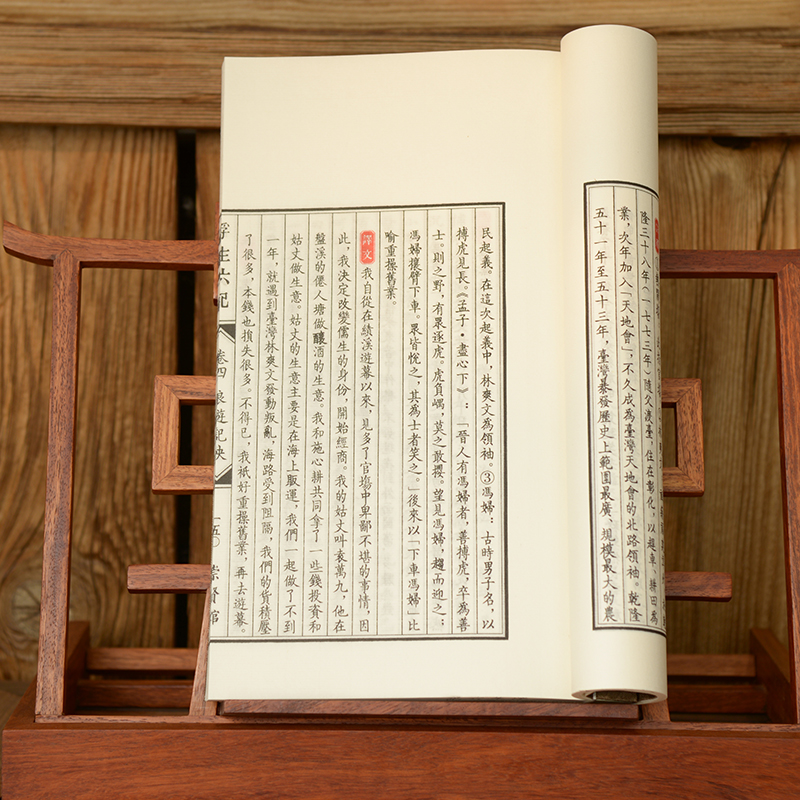 隆三十八年（一七七三年）隨父渡臺，住在彰化，以趕車、耕田為
業，次年加入「天地會」，不久成為臺灣天地會的北路領袖。乾隆
五十一年至五十三年，臺灣暴發歷史上範圍最廣、規模最大的農
民起義。在這次起義中，林爽文為領袖。③馮婦：古時男子名，以
搏虎見長。《孟子·盡心下》：「晉人有馮婦者，善搏虎，卒為善
士。則之野，有眾逐虎。虎負嵎，莫之敢攖。望見馮婦，趨而迎之；
馮婦攘臂下車。眾皆悅之，其為士者笑之。」後來以「下車馮婦」比
喻重操舊業。
譯文 我自從在績溪遊幕以來，見多了官場中卑鄙不堪的事情，因
此，我決定改變儒生的身份，開始經商。我的姑丈叫袁萬九，他在
盤溪的僊人塘做釀酒的生意。我和施心耕共同拿了一些錢投資和
姑丈做生意。姑丈的生意主要是在海上販運，我們一起做了不到
一年，就遇到臺灣林爽文發動叛亂，海路受到阻隔，我們的貨積壓
了很多，本錢也損失很多。不得已，我祇好重操舊業，再去遊幕。
浮生六記 卷四 浪遊記快 一五〇 崇賢館